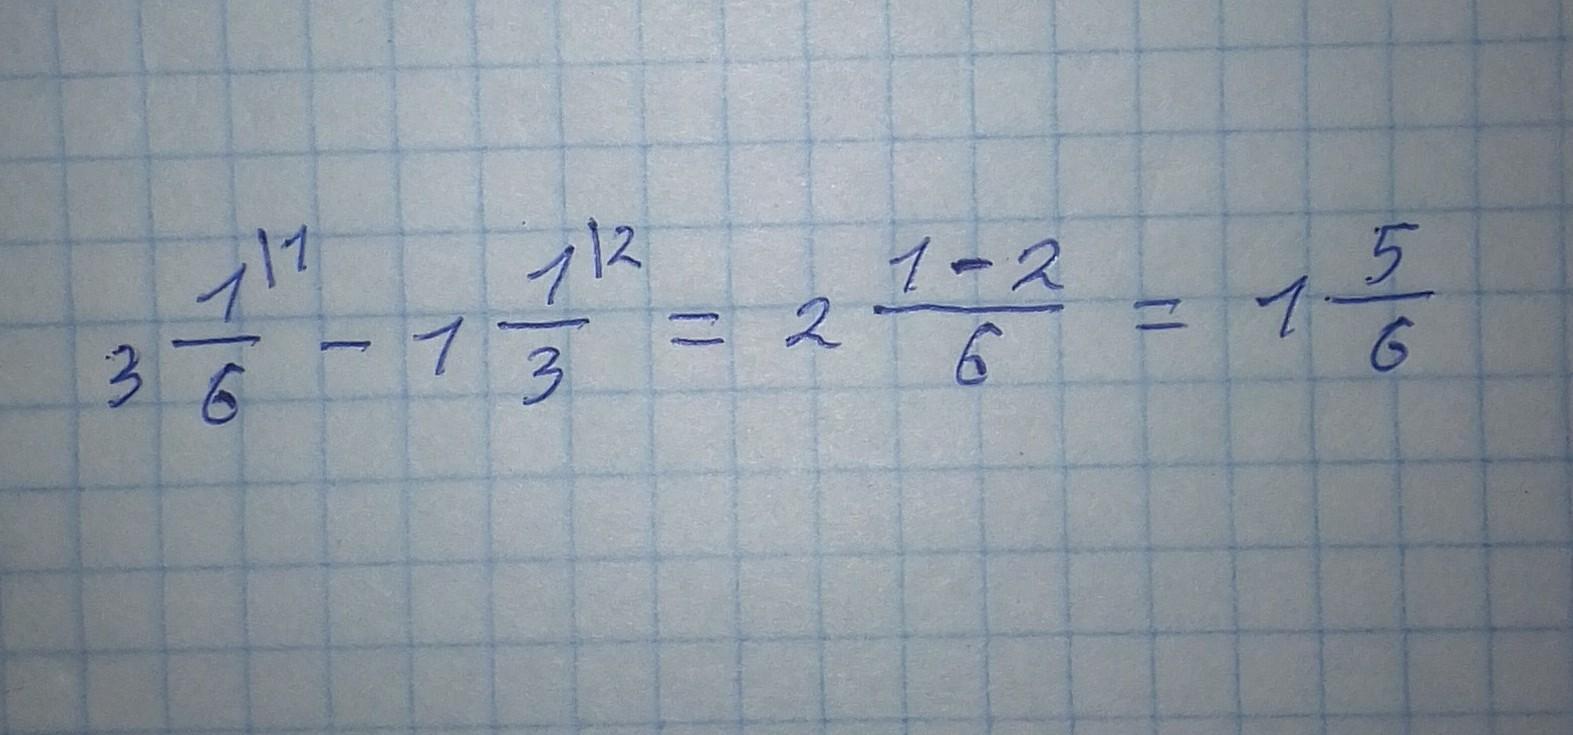 3 1\1/6 - 1 1\2/3 = 2 1-2/6 = 1 5/6